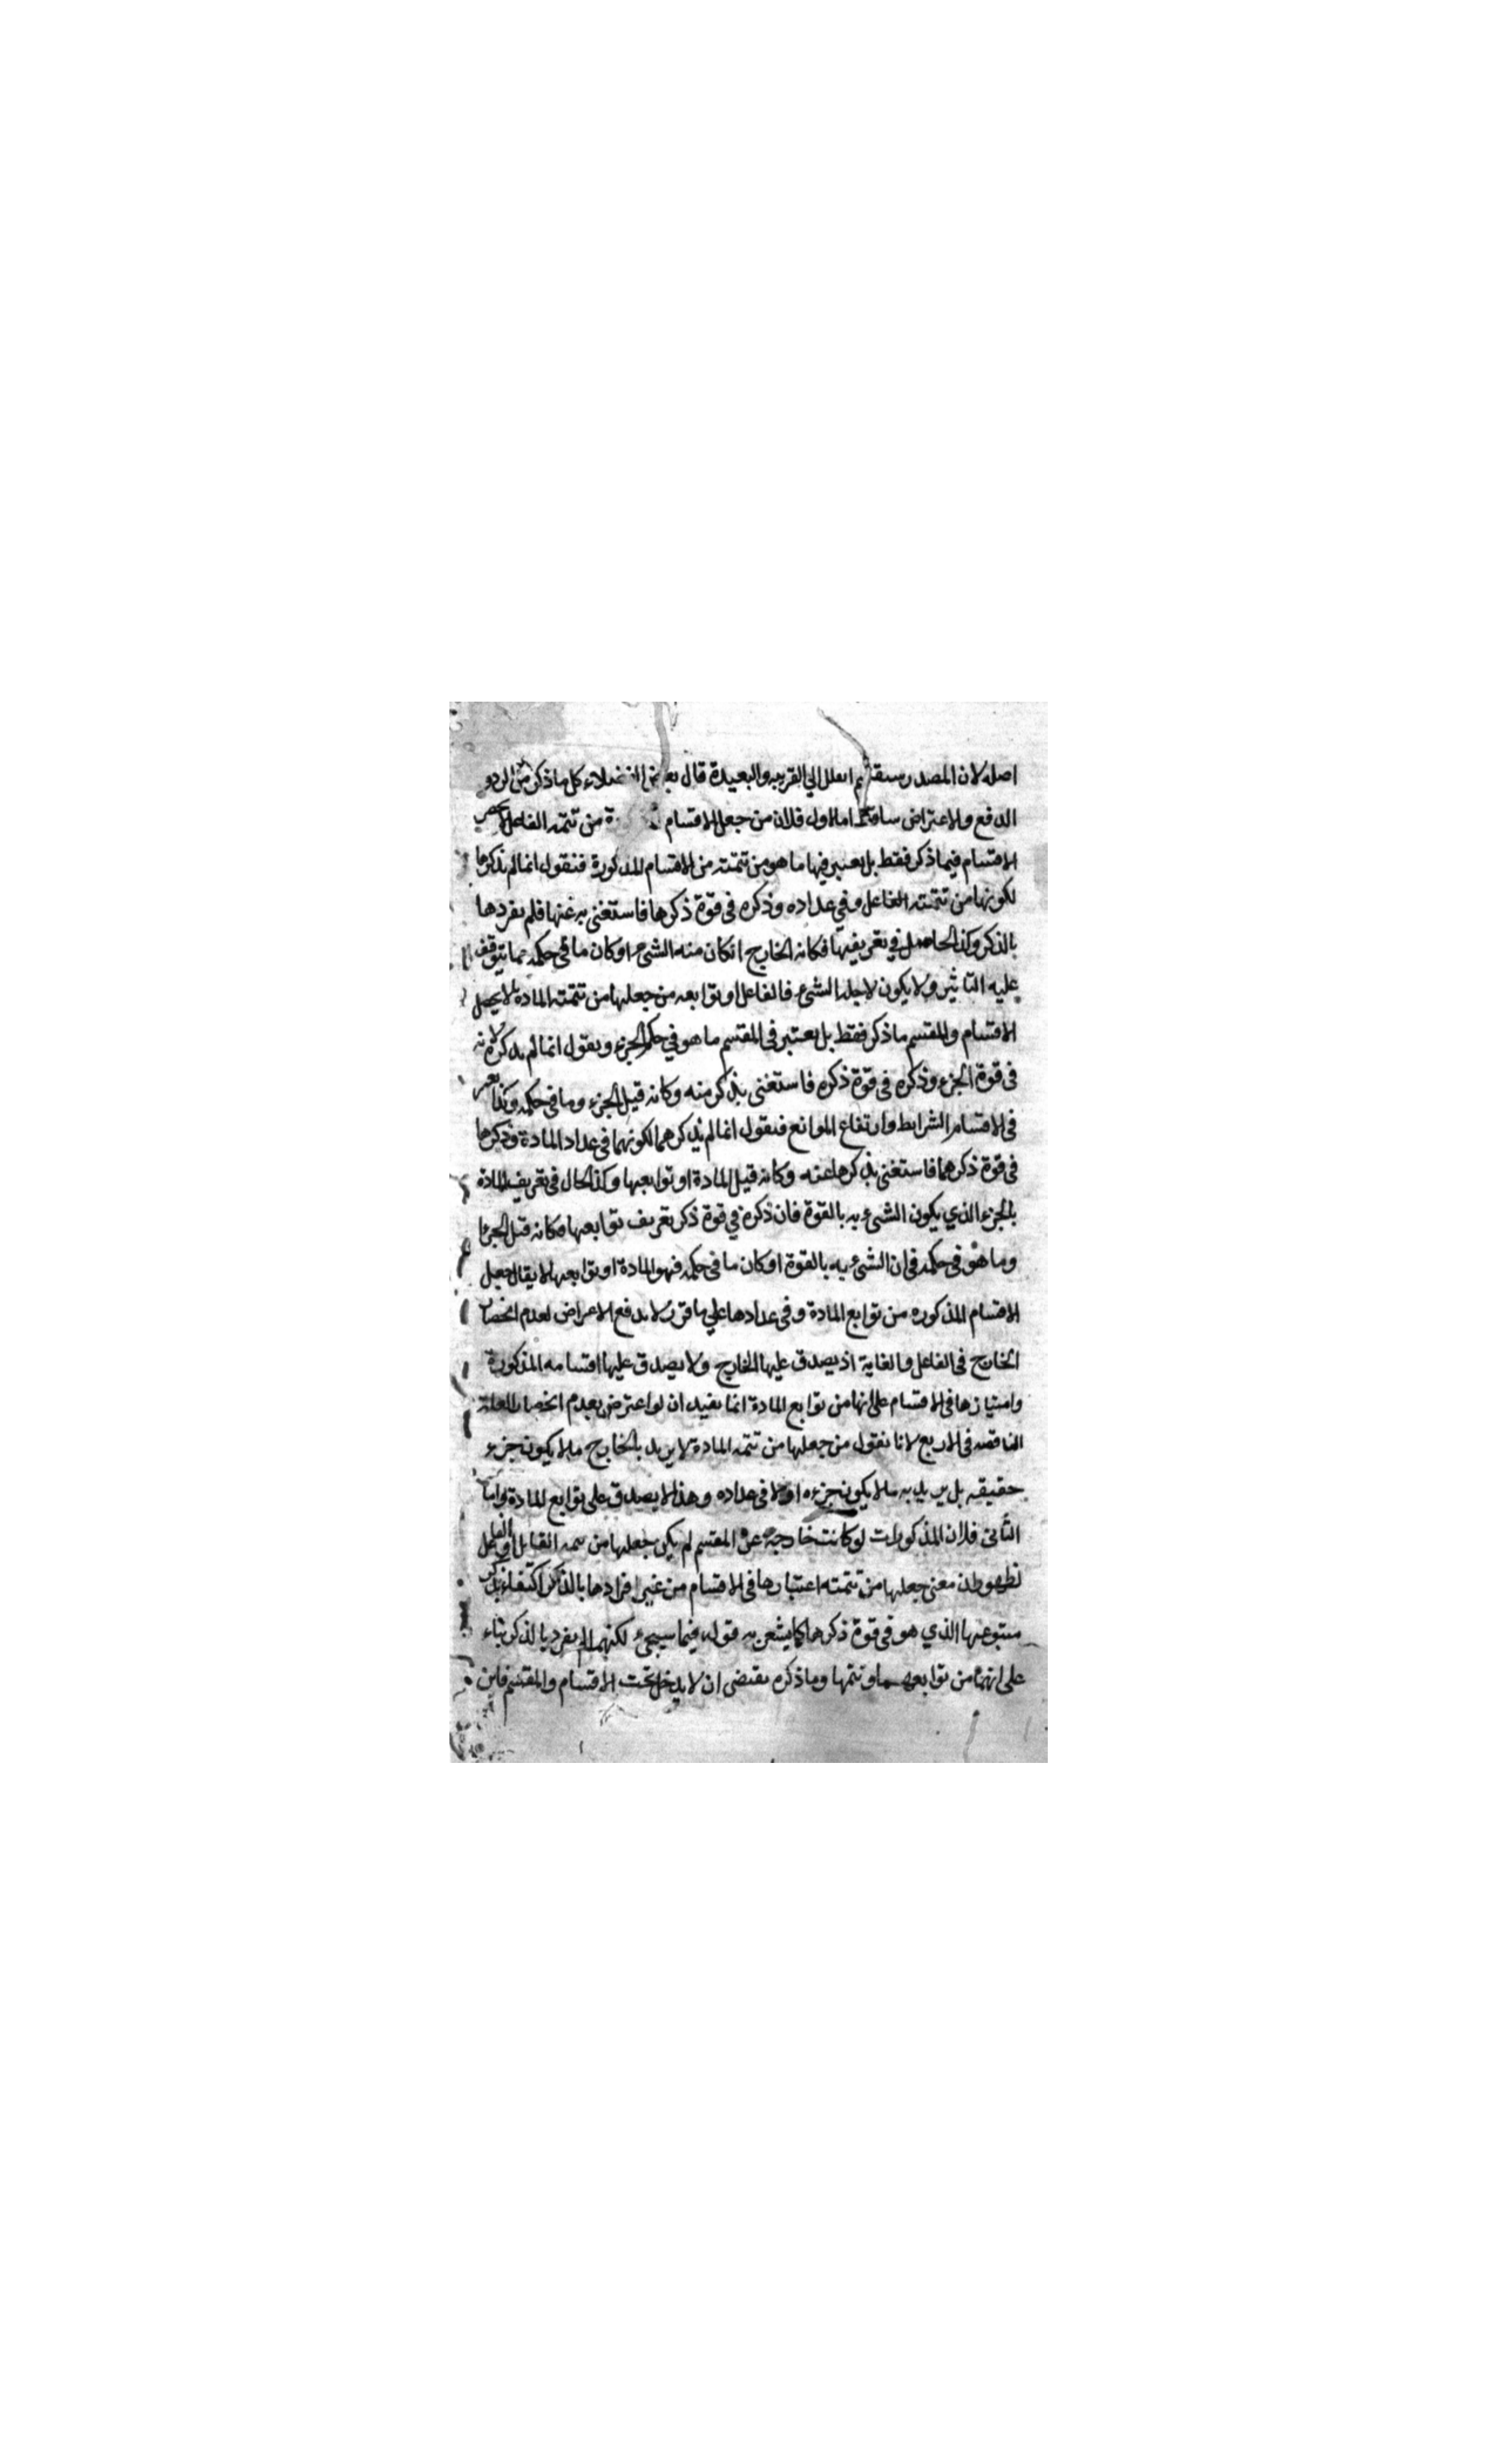 اصله لان المصدر العلل الي القريبه والبعيدة قال الفضلاء كل ما ذكر من الردو
الدفع والاعتراض ساقط اما الاول فلان من جعل الاقسام من تتمه الفاعل
الاقسام فيما ذكر فقط بل يعتبر فيها ما هو من تتمته من الاقسام المذكورة فنقول انما لم يذكرها
لكونها من تتمته الفاعل وفي عداده وذكره في قوة ذكرها فاستغنى به عنها فلم يفردها
بالذكر وكذا الحاصل في تعريفها فكانه الخارج ان كان منه الشئ او كان ما في حكمه مما يتوقف
عليه التاثير ولا يكون لاجله الشئ فالفاعل او توابعه من جعلها من تتمته المادة
الاقسام والمقسم ما ذكر فقط بل يعتبر في المقسم ما هو في حكم الجزء ويقول انما لم يذكره لانه
في قوة الجزء وذكره في قوة ذكره فاستغنى بذكر منه وكانه قيل الجزء وما في حكمه وكذا يعتبر
في الاقسام الشرايط وارتفاع الموانع فنقول انما لم يذكرهما لكونهما في عداد المادة وذكرها
في قوة ذكرهما فاستغنى بذكرها عنه وكانه قيل المادة او توابعها وكذا الحال في تعريف المادة
بالجزء الذي يكون الشئ به بالقوة فان ذكره في قوة ذكر تعريف توابعها فكانه قيل الجزء
وما هو في حكمه فان الشئ به بالقوة او كان ما في حكمه فهو المادة او توابعها لا يقال جعل
الاقسام المذكوره من توابع المادة وفي عدادها علي ما قرر لا يدفع الاعراض لعدم انحصار
الخارج في الفاعل والغاية اذ يصدق عليها الخارج ولا يصدق عليها اقسامه المذكورة
وامتيازها في الاقسام علي انها من توابع المادة انما يفيد ان لو اعترض بعدم انحصار العلة
الناقصه في الاربع لانا نقول من جعلها من تتمه المادة لا يريد بالخارج ما لا يكون جزء
حقيقه بل يريد به ما لا يكون جزءه اولا في عداده وهذا لا يصدق على توابع المادة واما
الثانى فلان المذكورات لو كانت خارجة عن المقسم لم يكن جعلها من تتمه القابل او الفاعل
معنى جعلها من تتمته اعتبارها في الاقسام من غير افرادها بالذكر اكتفاء بذكر
متبوعها الذي هو في قوة ذكرها كما يشعر به قوله فيما سيجئ لكنهما لم يفرد بالذكر بناء
على انهما من توابعهما وتتمها وما ذكره يقتضى ان لا يدخل تحت الاقسام والمقسم فاين